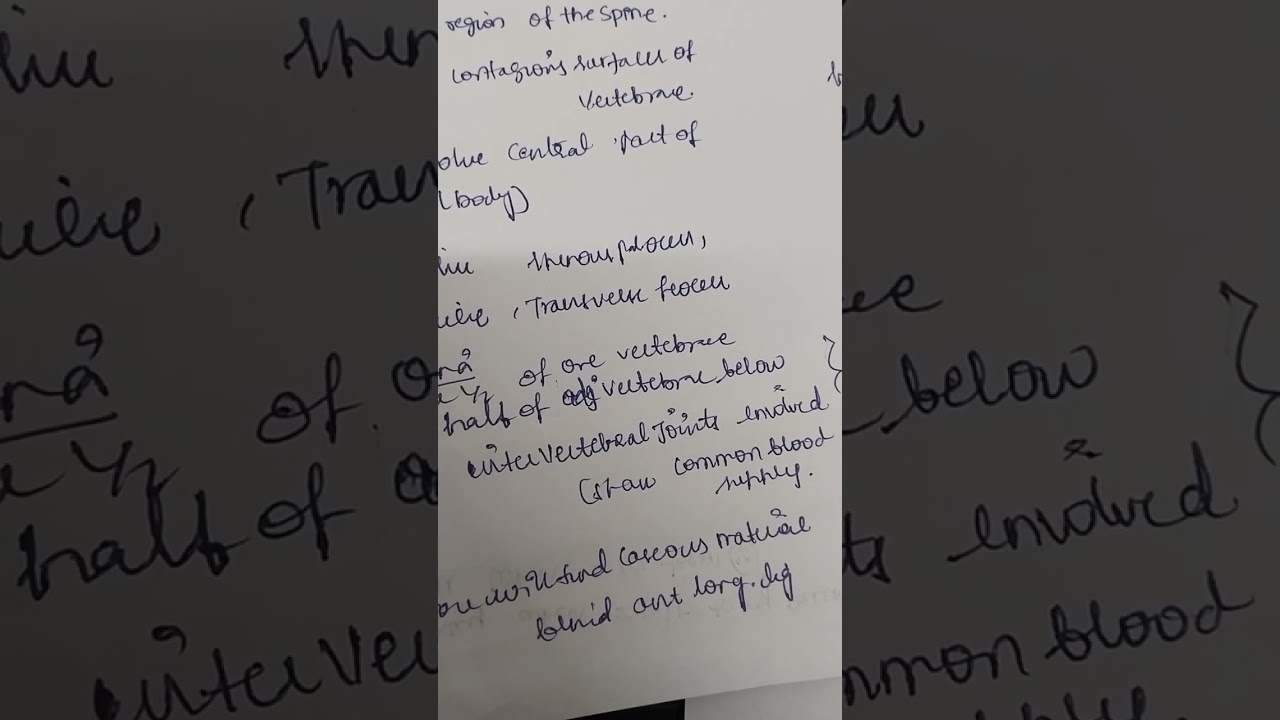 region of the spine.
contagious surface of
vertebrae.
olve central part of
(body)
spinous process,
, Transverse process
of one vertebrae
half of adj vertebrae below
intervertebral joints involved
(share common blood
supply.
ou will find caseous material
behind ant long. lig